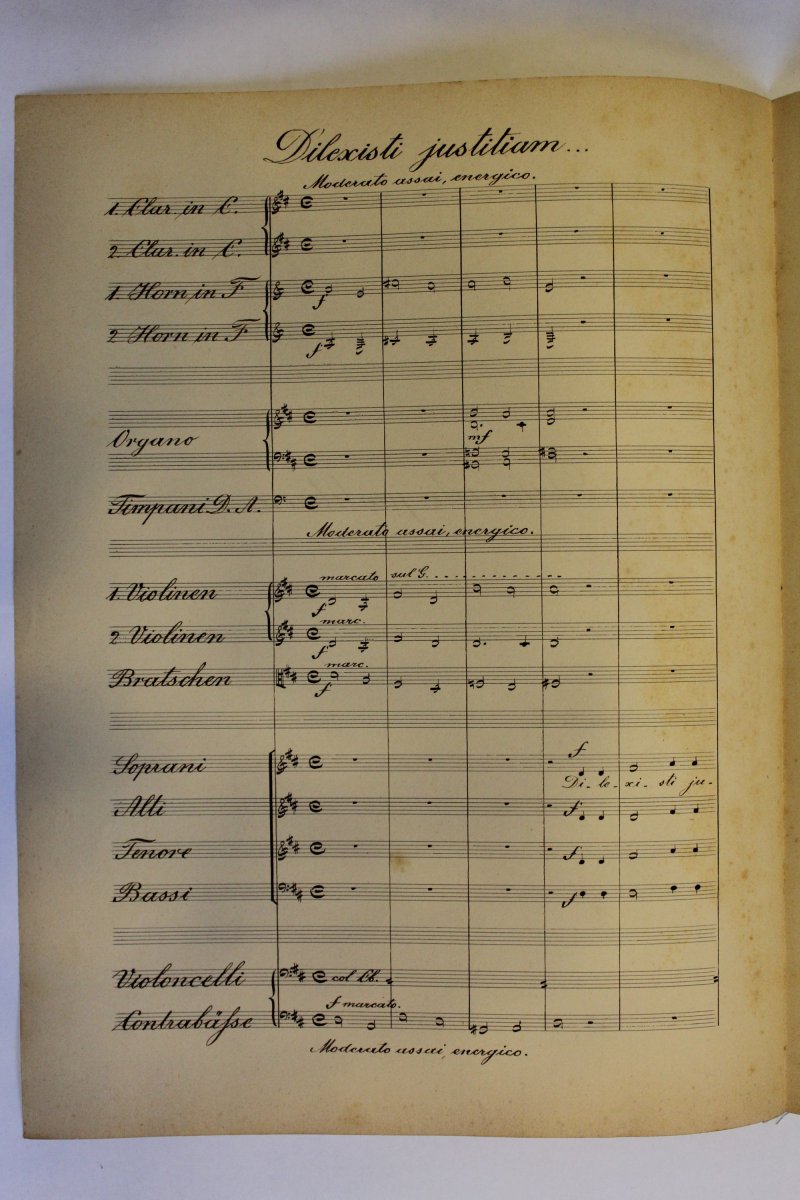 Dilexisti justitiam...
Moderato assai, energico.
1. Clar. in C.
2. Clar. in C.
1 Horn in F
f
2 Horn in F
f
Organo
mf
Timpani D. A.
Moderato assai, energico.
marcato sul G.
1. Violinen
f
marc.
2 Violinen
f
marc.
Bratschen
f
f
Soprani
Di-le-xi-sti ju-
Alti
f
Tenore
f
Bassi
f
Violoncelli
col Cb.
f marcato.
Contrabässe
Moderato assai, energico.